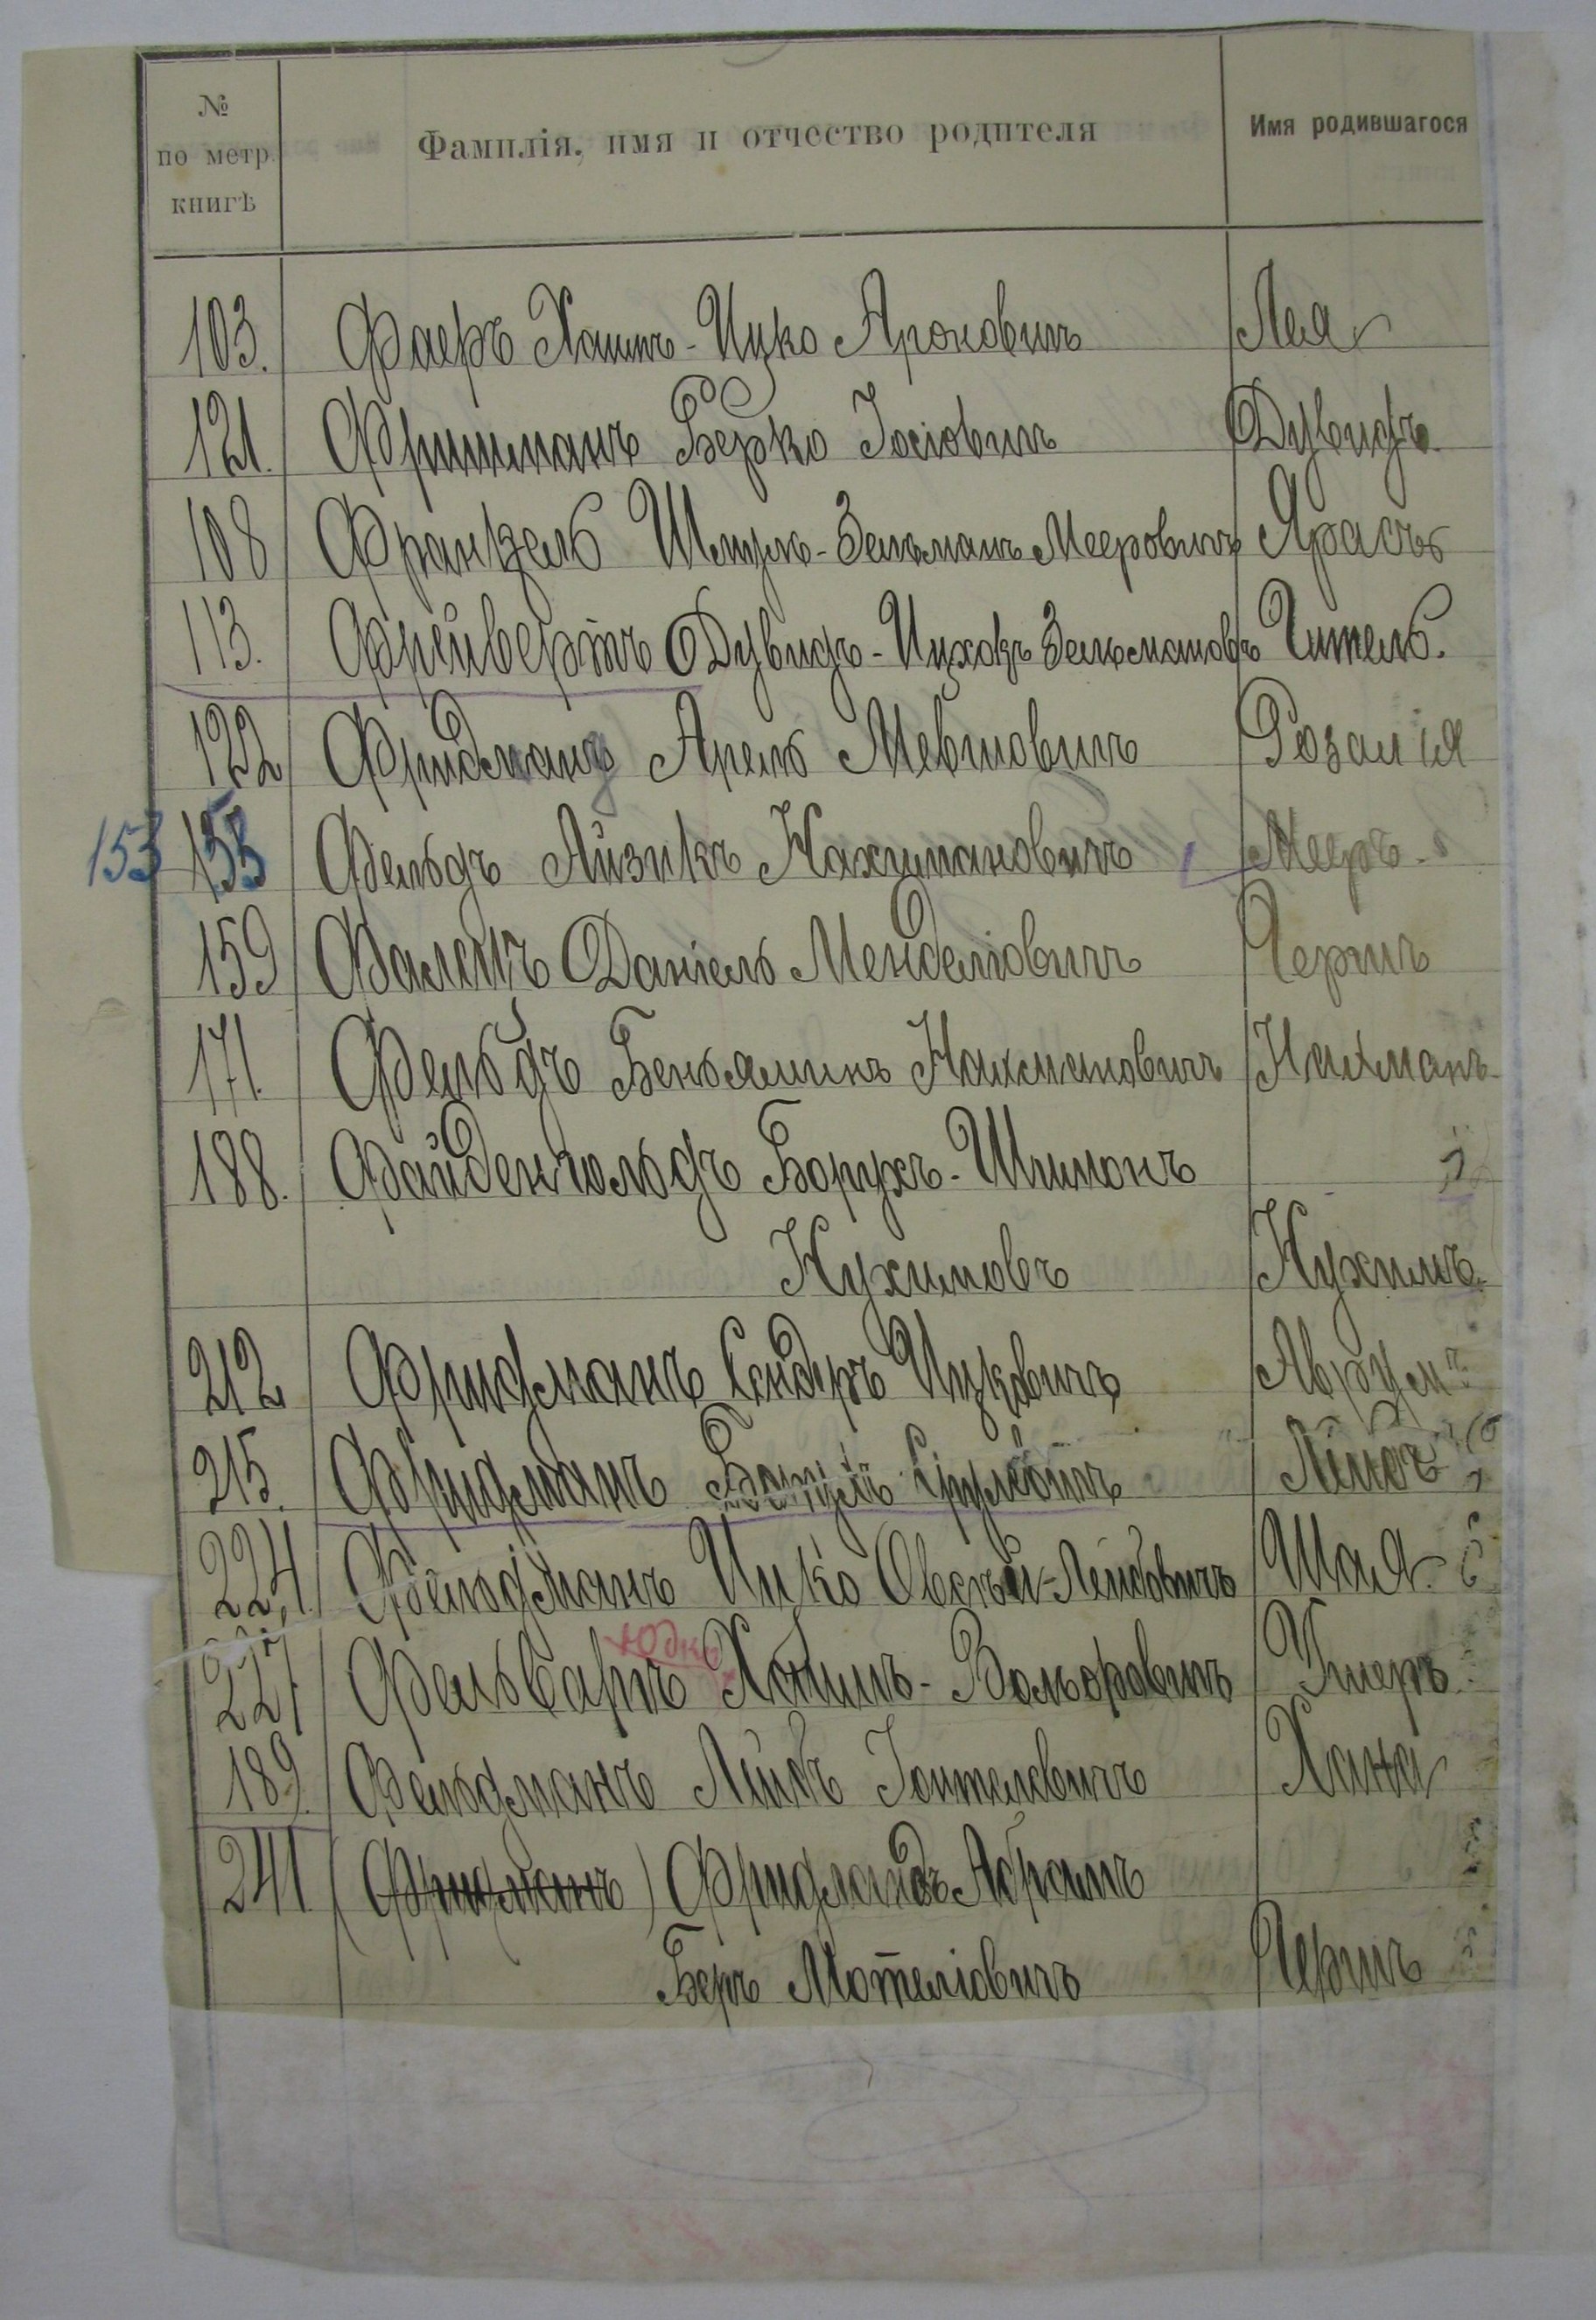 № по метр. книгѣ Фамилія, имя и отчество родителя Имя родившагося
103. Фаеръ Хаимъ-Ицко Ароновичъ Лея
121. Фришманъ Берко Іосіовичъ Дувидъ
108 Френкель Шмуль-Зельманъ Мееровичъ
113. Фрейвертъ Дувидъ-Ицхокъ Зельмановъ Гитель.
122 Фридманъ Арель Розалія
153 153 Фельдъ Айзикъ Нахимановичъ Мееръ
159 Фалекъ Даніель Менделіовичъ Геригъ
171. Фельдъ Беньяминъ Нахмановичъ Нахманъ
188. Файденгольдъ Борухъ-Шимонъ
Нухимовъ Нухимъ.
212 Фридманъ Сендеръ Ицковичъ Аврумъ
215. Фридманъ Борухъ Срулевичъ Лейбъ
224. Фельдманъ Ицко Овсей-Лейбовичъ Шая
227 Фельваръ Юдко Хаимъ-Вольфовичъ Ушеръ
189. Фельдманъ Лейбъ Хана
241 (Фридманъ) Фридландъ Абрамъ
Беръ Мотеліовичъ Геригъ